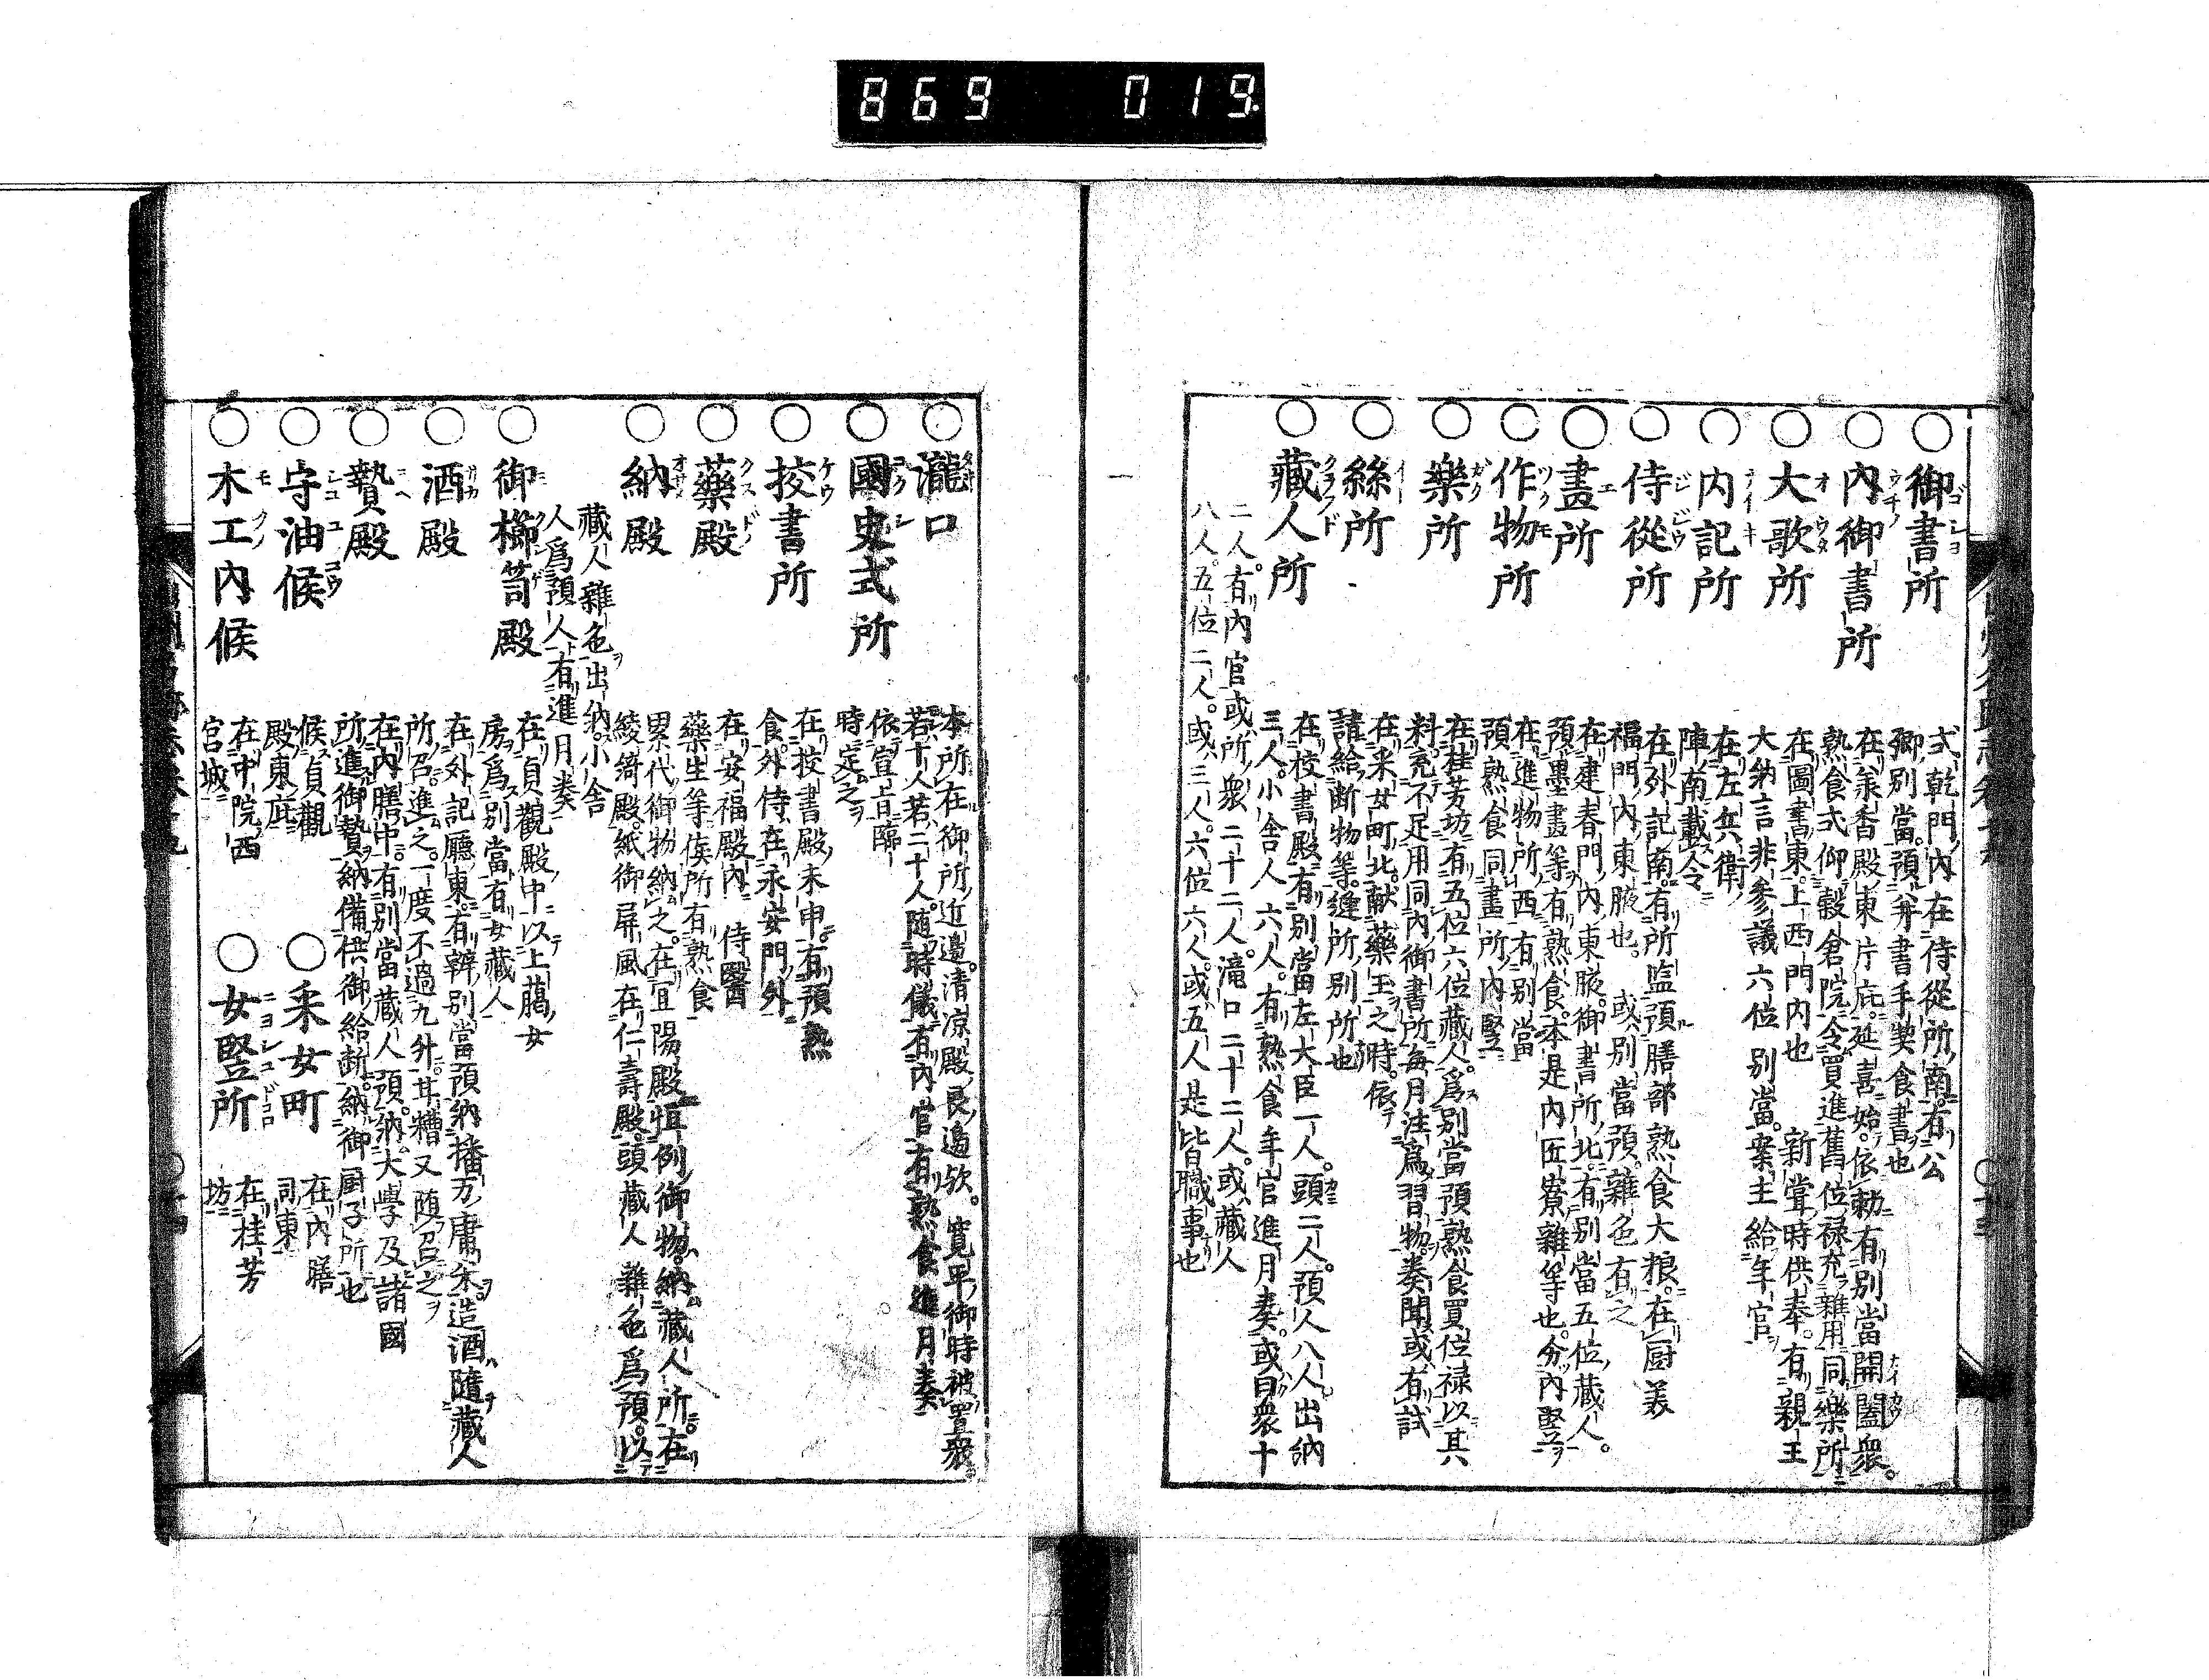 869 019
○御書所
式乾門内在侍從所南有公
卿別當預并書手契食書也
○内御書所
在承香殿東片庇延喜始依勅有別當開闔衆
熟食式仰穀倉院令買進舊位禄充雜用同樂所
○大歌所
在圖書東上西門内也 新甞時供奉有親王
大納言非參議六位別當案主給年官
○内記所
在左兵衛
陣南載令
○侍從所
在外記南有所監預膳部熟食大粮在厨美
福門内東腋也 或別當預雜色有之
○畫所
在建春門内東腋御書所北有別當五位藏人
預墨畫等有熟食本是内匠寮雜等也分内竪
○作物所
在進物所西有別當
預熟食同畫所内竪
○樂所
在桂芳坊有五位六位藏人爲別當預熟食買位禄以其
料充不足用同内御書所毎月注爲習物奏聞或有試
○絲所
在采女町北献藥玉之時依
請給断物等縫所別所也
○藏人所
在校書殿有別當左大臣一人頭二人預人八人出納
三人小舎人六人有熟食年官進月奏或曰衆十
二人有内官或所衆二十二人滝口二十二人或藏人
八人五位二人或三人六位六人或五人是皆職事也
○瀧口
本所在御所近邉清凉殿艮邉欤寛平御時被置衆
若十人若二十人随時儀有内官有熟食進月奏
○國史式所
依宣旨臨
時定之
○挍書所
在挍書殿未申有預熟
食外侍在永安門外
○藥殿
在安福殿内 侍醫
藥生等侯所有熟食
○納殿
累代御物納之在宜陽殿恒例御物納藏人所在
綾綺殿紙御屏風在仁壽殿頭藏人雜色爲預以
藏人雜色出納小舎
人爲預人有進月奏
○御櫛笥殿
在貞觀殿中以上﨟女
房爲別當有女藏人
○酒殿
在外記廳東有韓別當預納播万庸米造酒隨藏人
所召進之一度不過九升其糟又随召之
○贄殿
在内膳中有別當蔵人預納大學及諸國
所進御贄納備供御給断納御厨子所也
○守油候
候貞觀
殿東庇
○采女町
在内膳
司東
○木工内候
在中院西
宮城
○女竪所
在桂芳
坊